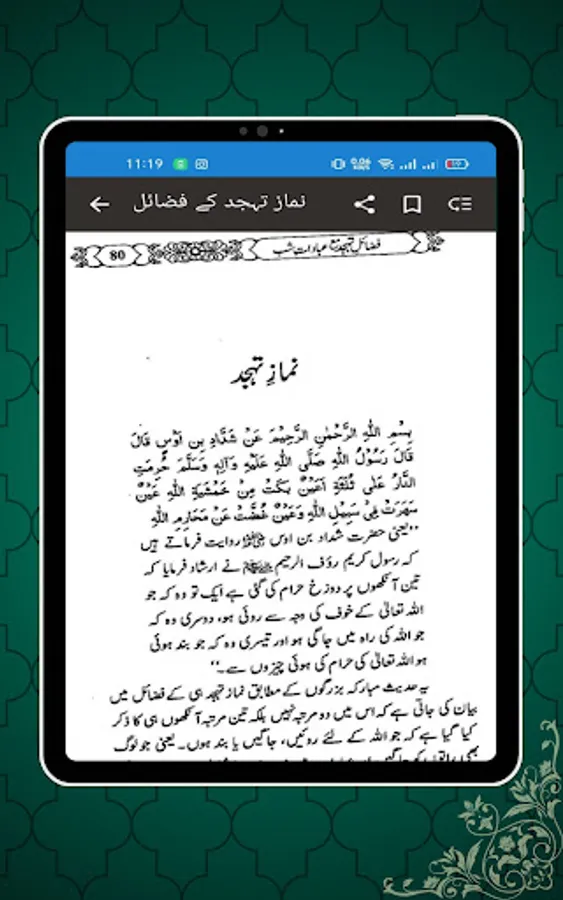 11:19
0.06
KB/S
نماز تہجد کے فضائل
فضائل تہجد مع عبادات شب
80
نمازِ تہجد
بِسْمِ اللّٰہِ الرَّحْمٰنِ الرَّحِیْمَ عَنْ شَدَّادِ بِن اَوْسٍ قَالَ
قَالَ رَسُوْلُ اللّٰہِ صَلَّی اللّٰہِ عَلَیْہِ وَآلِہٖ وَسَلَّمَ حُرِمَتِ
النَّارُ عَلٰی ثَلٰثَةِ اَعْیُنٌ بَکَتْ مِنْ خَشْیَةِ اللّٰہِ عَیْنٌ
سَهِرَتْ فِیْ سَبِیْلِ اللّٰہِ وَعَیْنٌ غُضَّتْ عَنْ مَحَارِمِ اللّٰہِ
’’یعنی حضرت شداد بن اوس ؓ روایت فرماتے ہیں
کہ رسول کریم رؤف الرحیم ﷺ نے ارشاد فرمایا کہ
تین آنکھوں پر دوزخ حرام کی گئی ہے ایک تو وہ کہ جو
اللہ تعالیٰ کے خوف کی وجہ سے روئی ہو، دوسری وہ کہ
جو اللہ کی راہ میں جاگی ہو اور تیسری وہ کہ جو بند ہوئی
ہو اللہ تعالیٰ کی حرام کی ہوئی چیزوں سے۔‘‘
یہ حدیث مبارکہ بزرگوں کے مطابق نماز تہجد ہی کے فضائل میں
بیان کی جاتی ہے کہ اس میں دو مرتبہ نہیں بلکہ تین مرتبہ آنکھوں ہی کا ذکر
کیا گیا ہے کہ جو اللہ کے لئے روئیں، جاگیں یا بند ہوں۔ یعنی جو لوگ
بھی راتوں کو جاگیں